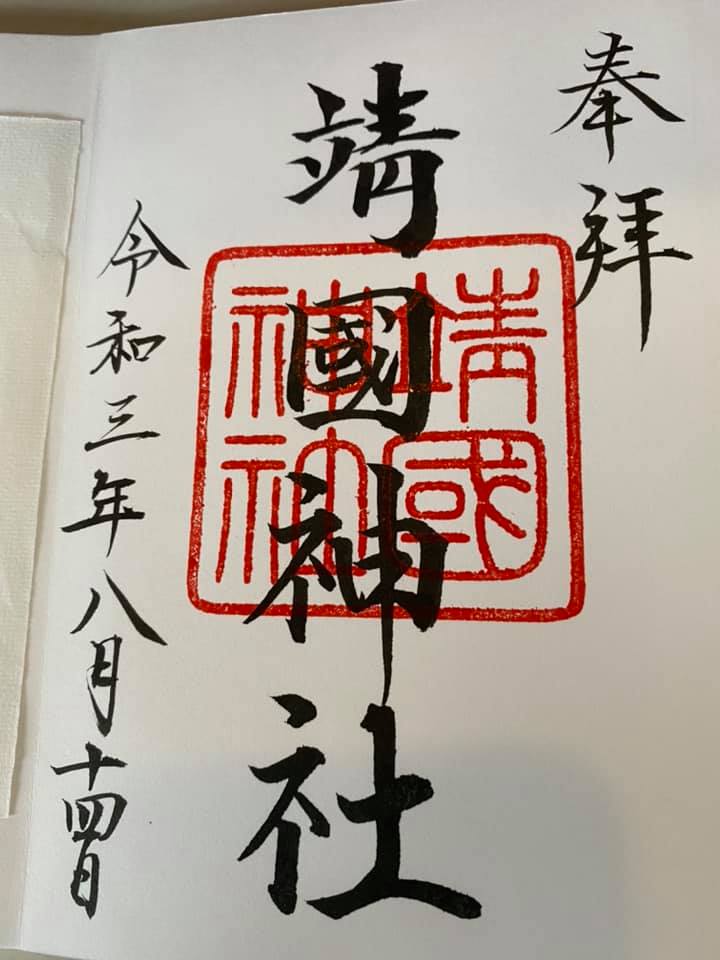 奉拝
靖國神社
靖國
神社
令和三年八月十四日